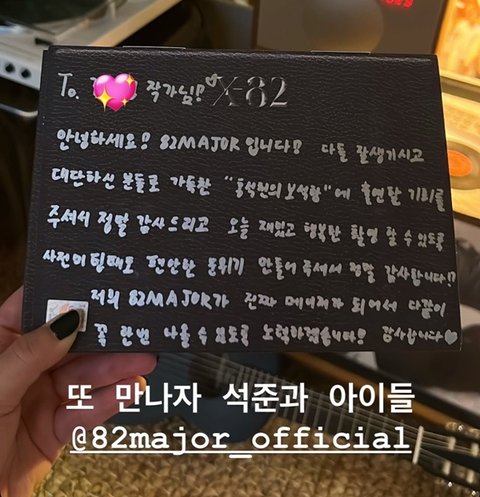 To. 작가님!? X-82
안녕하세요! 82MAJOR 입니다! 다들 잘생기시고
대단하신 분들로 가득한 "홍석천의 보석함"에 출연할 기회를
주셔서 정말 감사드리고 오늘 재밌고 행복한 촬영 할 수 있도록
사전미팅때도 편안한 분위기 만들어 주셔서 정말 감사합니다!?
저희 82MAJOR가 진짜 메이저가 되어서 다같이
꼭 한번 나올 수 있도록 노력하겠습니다! 감사합니다♡
또 만나자 석준과 아이들
@82major_official